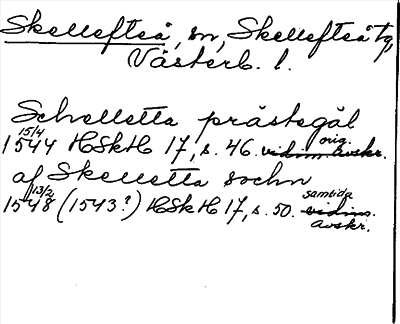 Skellefteå, sn, Skellefteå tg,
Västerb. l.
Schelletta prästegäl
15/4 1544 HSkH 17, s. 46. vidim. avskr. orig.
af Skelletta sochn
13/2 1548 (1543?) HSkH 17, s. 50. vidim. samtida
avskr.